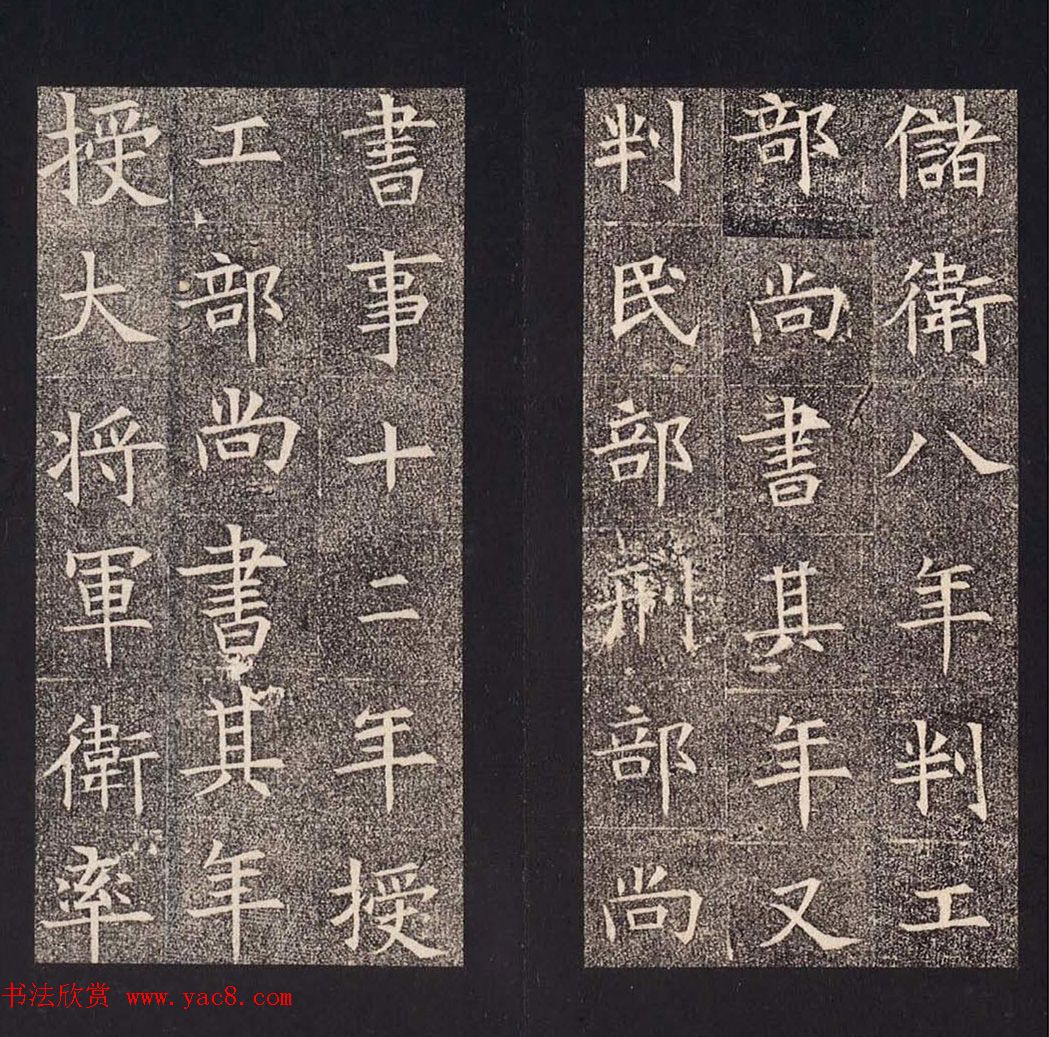 儲衛八年判工
部尚書其年又
判民部刑部尚
書事十二年授
工部尚書其年
授大将軍衛率
书法欣赏 www.yac8.com